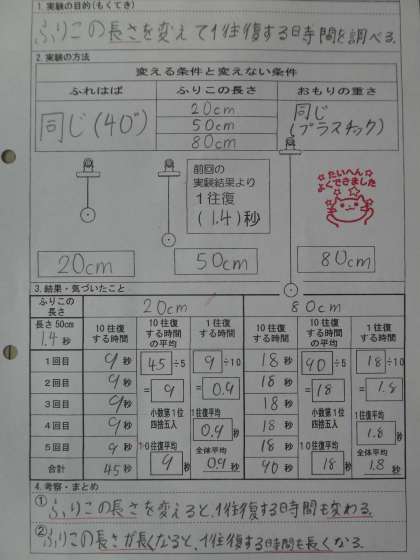 1. 実験の目的(もくてき)
ふりこの長さを変えて1往復する時間を調べる.
2. 実験の方法
変える条件と変えない条件
ふれはば ふりこの長さ おもりの重さ
同じ(40°) 20cm 同じ
50cm (プラスチック)
80cm
前回の
実験結果より
1往復
(1.4)秒
たいへん
よくできました
20cm 50cm 80cm
3. 結果・気づいたこと
ふりこの長さ 20cm 80cm
長さ50cm 1.4秒 10往復する時間 10往復する時間の平均 1往復する時間 10往復する時間 10往復する時間の平均 1往復する時間
1回目 9秒 45÷5 9÷10 18秒 90÷5 18÷10
2回目 9秒 =9 =0.9 18秒 =18 =1.8
3回目 9秒 小数第1位 18秒 小数第1位
4回目 9秒 四捨五入 1往復平均 0.9秒 18秒 四捨五入 1往復平均 1.8秒
5回目 9秒 10往復平均 全体平均 18秒 10往復平均 全体平均
合計 45秒 9秒 0.9秒 90秒 18秒 1.8秒
4. 考察・まとめ
①ふりこの長さを変えると、1往復する時間も変わる.
②ふりこの長さが長くなると、1往復する時間も長くなる.